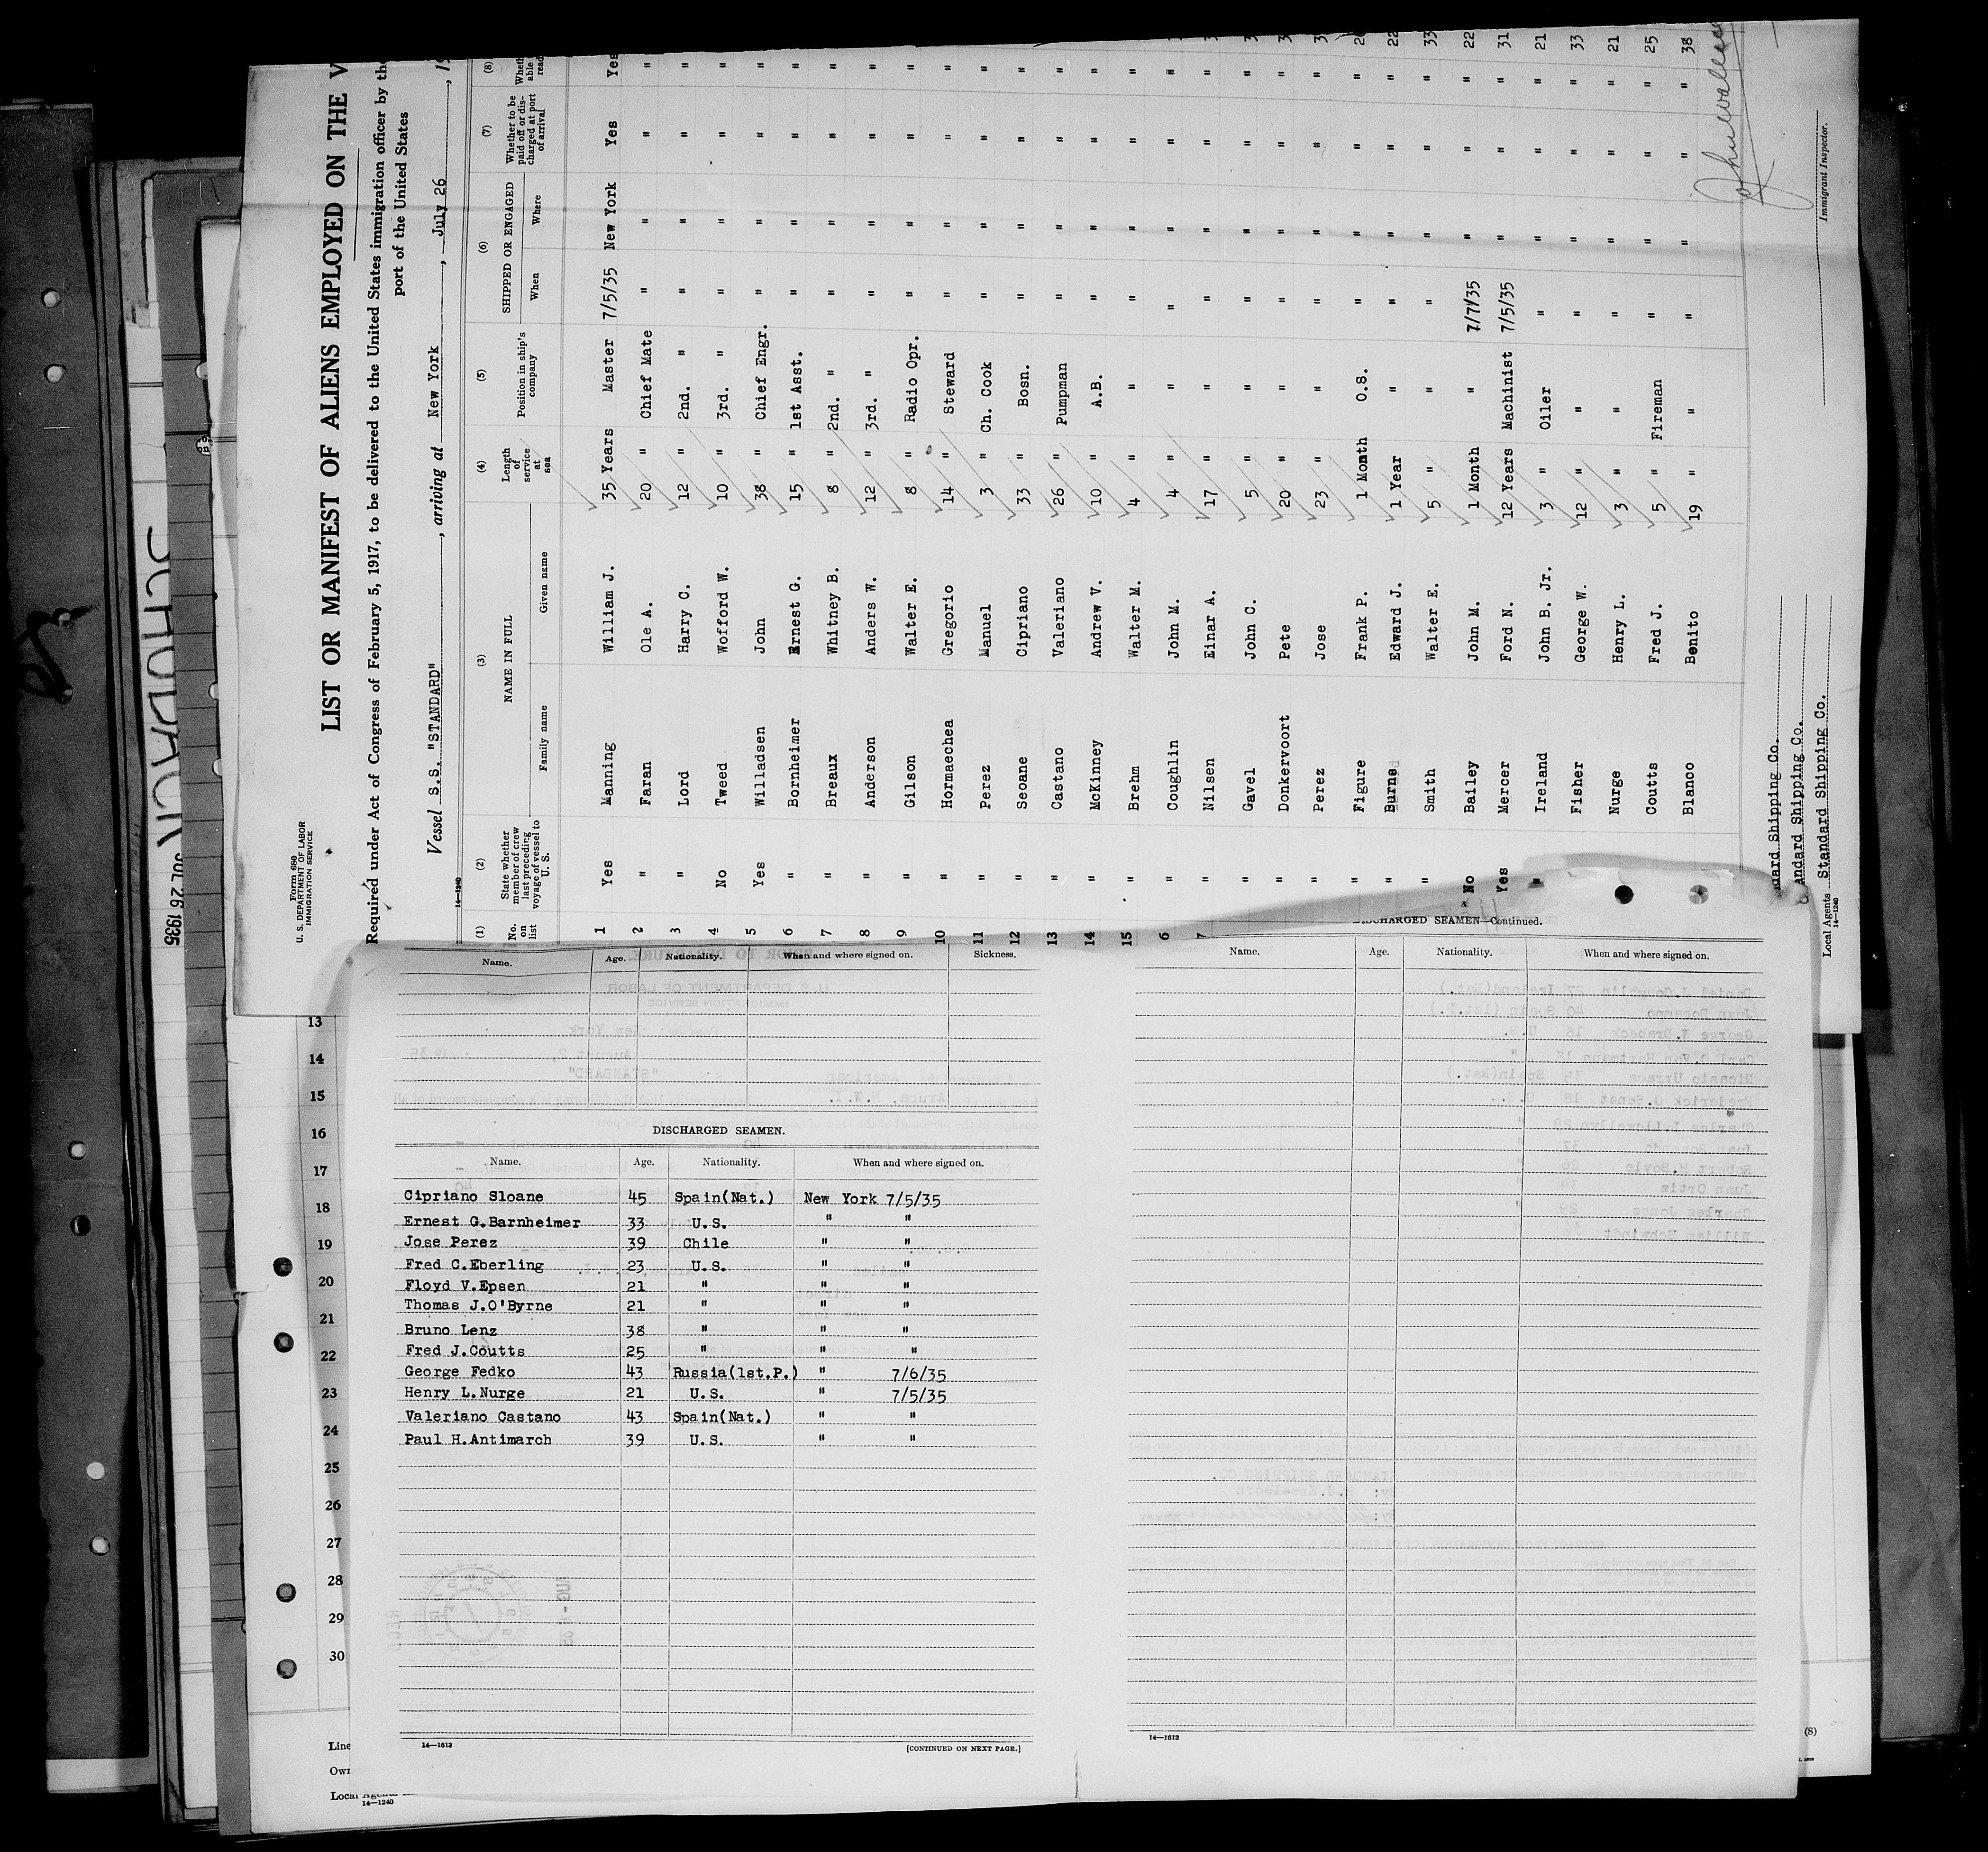 Form 680
U. S. DEPARTMENT OF LABOR
IMMIGRATION SERVICE
LIST OR MANIFEST OF ALIENS EMPLOYED ON THE V
Required under Act of Congress of February 5, 1917, to be delivered to the United States immigration officer by the
port of the United States
Vessel S.S. "STANDARD", arriving at New York, July 26, 19
14—1240
(1) (2) (3) (4) (5) (6) (7) (8)
No. on list
State whether member of crew last preceding voyage of vessel to U. S.
NAME IN FULL
Family name Given name
Length of service at sea
Position in ship's company
SHIPPED OR ENGAGED
When Where
Whether to be paid off or discharged at port of arrival
Wheth able read
1 Yes Manning William J. 35 Years Master 7/5/35 New York Yes Yes
2 " Faran Ole A. 20 " Chief Mate " " " "
3 " Lord Harry C. 12 " 2nd. " " " " "
4 No Tweed Wofford W. 10 " 3rd. " " " " "
5 Yes Willadsen John 38 " Chief Engr. " " " "
6 " Bornheimer Ernest G. 15 " 1st Asst. " " " "
7 " Breaux Whitney B. 8 " 2nd. " " " " "
8 " Anderson Anders W. 12 " 3rd. " " " " "
9 " Gilson Walter E. 8 " Radio Opr. " " " "
10 " Hormaechea Gregorio 14 " Steward " " " "
11 " Perez Manuel 3 " Ch. Cook " " " "
12 " Seoane Cipriano 33 " Bosn. " " " "
13 " Castano Valeriano 26 " Pumpman " " " "
14 " McKinney Andrew V. 10 " A.B. " " " "
15 " Brehm Walter M. 4 " " " " " "
6 " Coughlin John M. 4 " " " " " "
7 " Nilsen Einar A. 17 " " " " " "
" Gavel John C. 5 " " " " " "
" Donkervoort Pete 20 " " " " " "
" Perez Jose 23 " " " " " "
" Figure Frank P. 1 Month O.S. " " " " 20
" Burns Edward J. 1 Year " " " " " 22
" Smith Walter E. 5 " " " " " " 33
No Bailey John M. 1 Month " 7/7/35 " " " 22
Yes Mercer Ford N. 12 Years Machinist 7/5/35 " " " 31
" Ireland John B. Jr. 3 " Oiler " " " " 21
Fisher George W. 12 " " " " " " 33
Nurge Henry L. 3 " " " " " " 21
Coutts Fred J. 5 " Fireman " " " " 25
Blanco Benito 19 " " " " " " 38
Immigrant Inspector.
dard Shipping Co.
andard Shipping Co.
Local Agents Standard Shipping Co.
14—1240
JUL 26 1935
Name. Age. Nationality. When and where signed on. Sickness.
DISCHARGED SEAMEN.
Name. Age. Nationality. When and where signed on.
Cipriano Sloane 45 Spain(Nat.) New York 7/5/35
Ernest G.Barnheimer 33 U.S. " "
Jose Perez 39 Chile " "
Fred C.Eberling 23 U.S. " "
Floyd V.Epsen 21 " " "
Thomas J.O'Byrne 21 " " "
Bruno Lenz 38 " " "
Fred J.Coutts 25 " " "
George Fedko 43 Russia(1st.P.) " 7/6/35
Henry L.Nurge 21 U.S. " 7/5/35
Valeriano Castano 43 Spain(Nat.) " "
Paul H.Antimarch 39 U.S. " "
14—1613
[CONTINUED ON NEXT PAGE.]
DISCHARGED SEAMEN—Continued.
Name. Age. Nationality. When and where signed on.
14—1613
13
14
15
16
17
18
19
20
21
22
23
24
25
26
27
28
29
30
Line
Own
Local Agents
14—1240
(8)